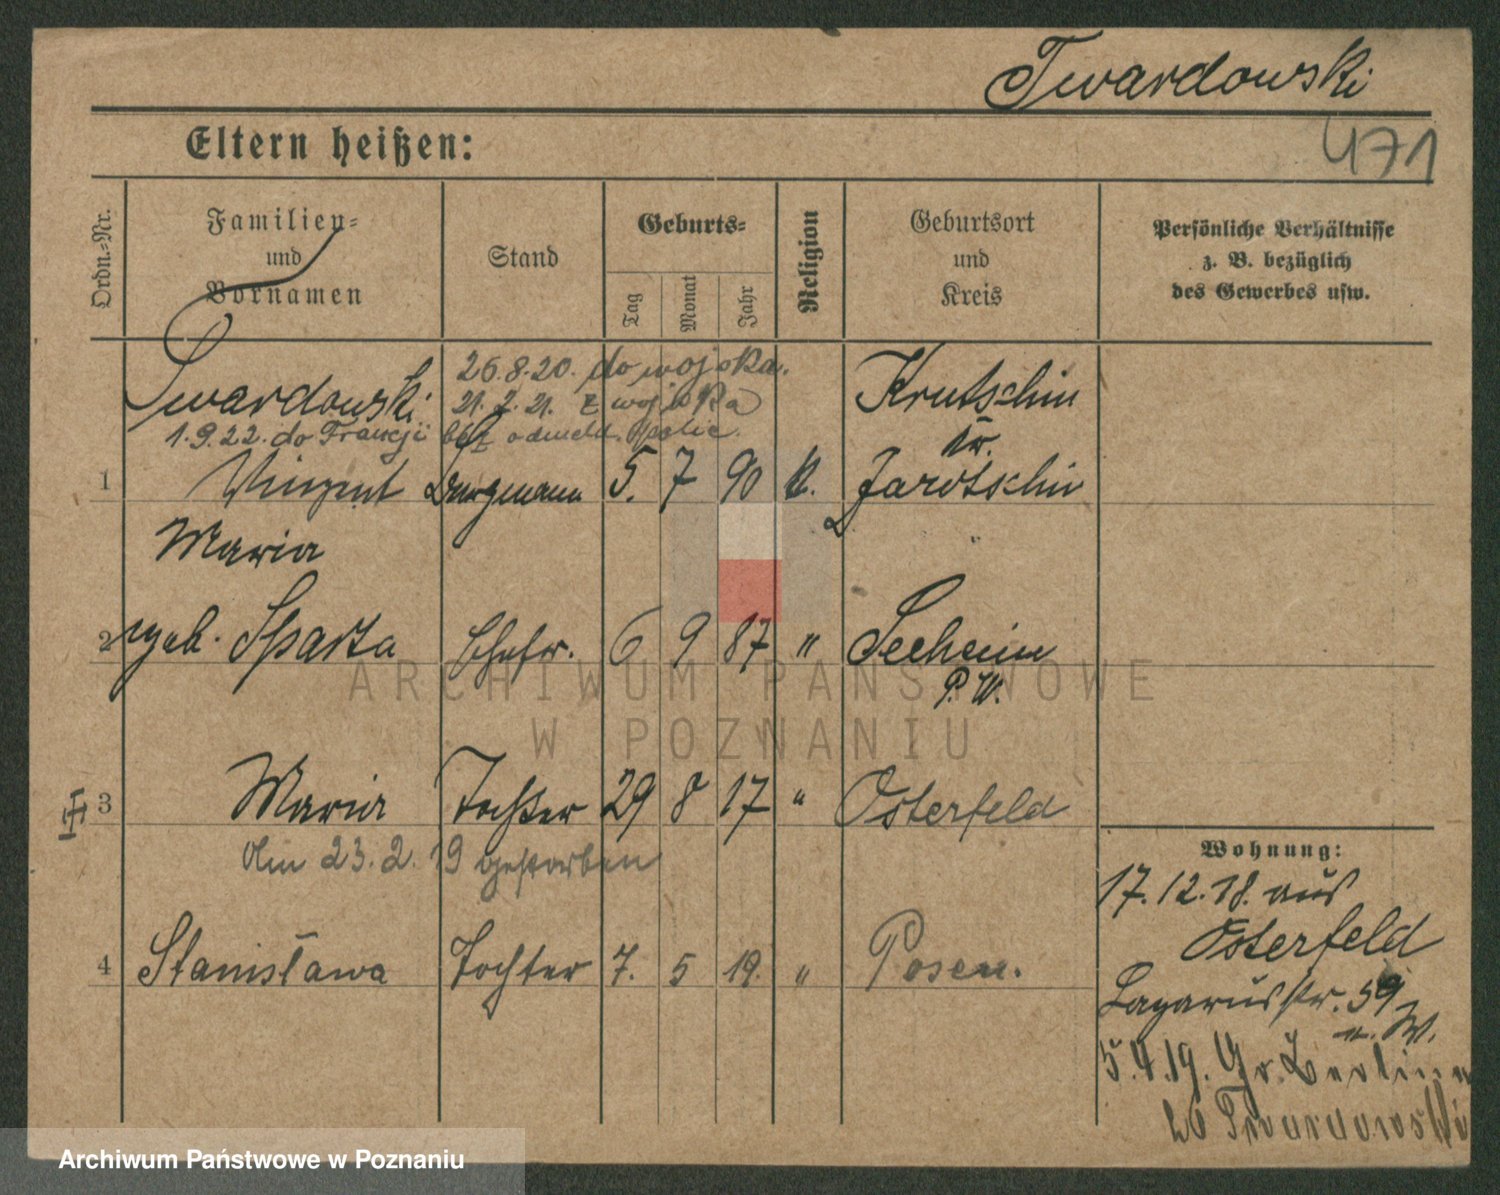 Twardowski
471
Eltern heißen:
Ordn.-Nr.
Familien-
und
Vornamen
Stand
Geburts-
Tag
Monat
Jahr
Religion
Geburtsort
und
Kreis
Persönliche Verhältnisse
z. B. bezüglich
des Gewerbes usw.
26.8.20. do wojska.
Twardowski 21.2.21. z wojska
1.9.22. do Francji bez odmeld. polic.
Krutschin
Kr.
1 Vinzent Bergmann 5. 7 90 k. Jarotschin
Maria
2 geb. Sparta Ehefr. 6 9 87 " Seeheim
P. W.
3 Maria Tochter 29 8 17 " Osterfeld
Am 23.2.19 gestorben
4 Stanisława Tochter 7. 5 19. " Posen.
Wohnung:
17.12.18. aus
Osterfeld
Lazarusstr. 59
n. W.
5.4.19. Gr. Berliner
20 Twardowski
ARCHIWUM PAŃSTWOWE
W POZNANIU
Archiwum Państwowe w Poznaniu